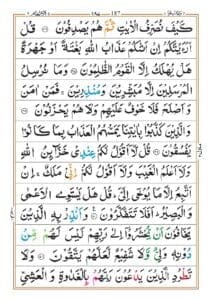 كَيْفَ نُصَرِّفُ الْاٰيٰتِ ثُمَّ هُمْ يَصْدِفُوْنَ ۝ قُلْ
اَرَءَيْتَكُمْ اِنْ اَتٰىكُمْ عَذَابُ اللّٰهِ بَغْتَةً اَوْ جَهْرَةً
هَلْ يُهْلَكُ اِلَّا الْقَوْمُ الظّٰلِمُوْنَ ۝ وَمَا نُرْسِلُ
الْمُرْسَلِيْنَ اِلَّا مُبَشِّرِيْنَ وَمُنْذِرِيْنَ ۚ فَمَنْ اٰمَنَ
وَاَصْلَحَ فَلَا خَوْفٌ عَلَيْهِمْ وَلَا هُمْ يَحْزَنُوْنَ ۝
وَالَّذِيْنَ كَذَّبُوْا بِاٰيٰتِنَا يَمَسُّهُمُ الْعَذَابُ بِمَا كَانُوْا
يَفْسُقُوْنَ ۝ قُلْ لَّاۤ اَقُوْلُ لَكُمْ عِنْدِيْ خَزَآئِنُ اللّٰهِ
وَلَاۤ اَعْلَمُ الْغَيْبَ وَلَاۤ اَقُوْلُ لَكُمْ اِنِّيْ مَلَكٌ ۚ اِنْ
اَتَّبِعُ اِلَّا مَا يُوْحٰۤى اِلَيَّ ؕ قُلْ هَلْ يَسْتَوِي الْاَعْمٰى
وَالْبَصِيْرُ ؕ اَفَلَا تَتَفَكَّرُوْنَ ۝ وَاَنْذِرْ بِهِ الَّذِيْنَ
يَخَافُوْنَ اَنْ يُّحْشَرُوْۤا اِلٰى رَبِّهِمْ لَيْسَ لَهُمْ مِّنْ دُوْنِهٖ
وَلِيٌّ وَّلَا شَفِيْعٌ لَّعَلَّهُمْ يَتَّقُوْنَ ۝ وَلَا
تَطْرُدِ الَّذِيْنَ يَدْعُوْنَ رَبَّهُمْ بِالْغَدٰوةِ وَالْعَشِيِّ